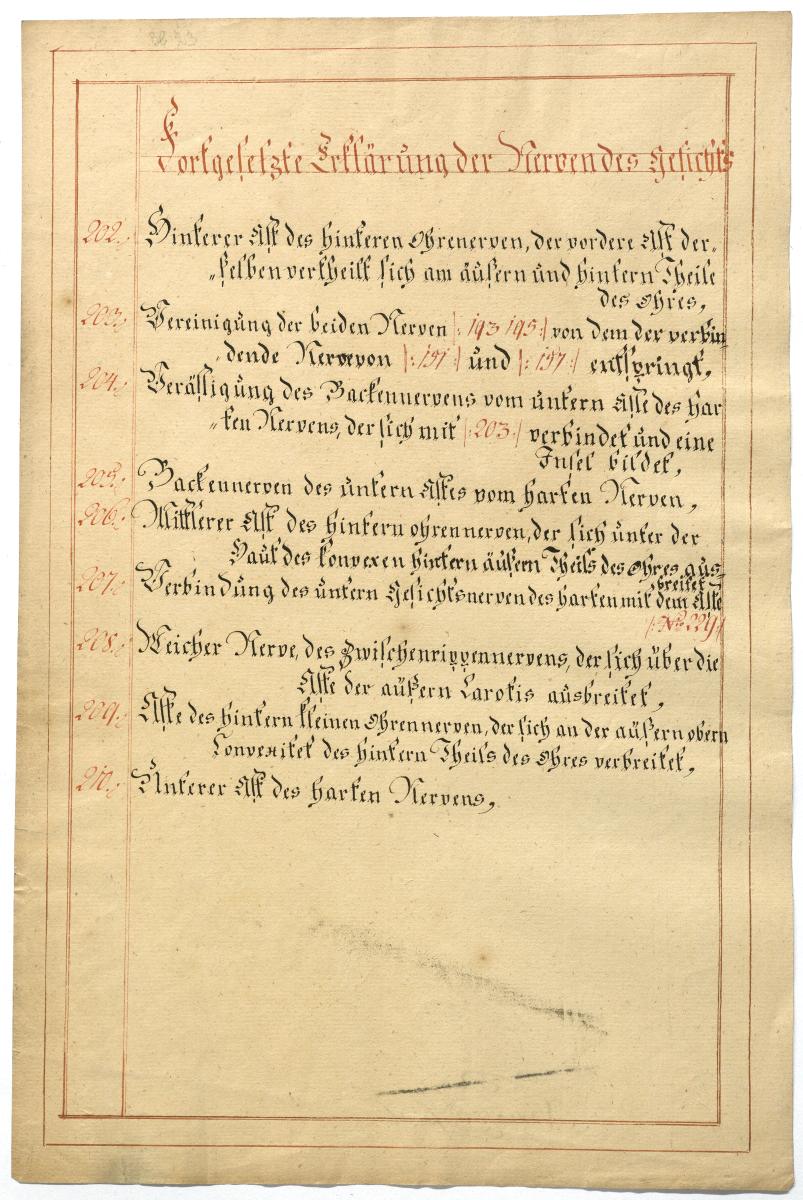 Fortgesetzte Erklärung der Nerven des Gesichts
202. Hinterer Ast des hinteren Ohrenerven, der vordere Ast der„
„selben vertheilt sich am äußern und hintern Theile
des Ohres,
203. Vereinigung der beiden Nerven |: 193 195 :| von dem der verbin
„dende Nerve von |: 151 :| und |: 157 :| entspringt,
204. Verästigung des Backennervens vom untern Aste des har
„ten Nervens, der sich mit |: 203 :| verbindet und eine
Insel bildet,
205. Backennerven des untern Astes vom harten Nerven,
206. Mittlerer Ast des hintern ohrennerven, der sich unter der
Haut des konvexen hintern äußern Theils des Ohres aus„
breitet
207. Verbindung des untern Gesichtsnerven des harten mit dem Aste
|: No 229 :|
208. Weicher Nerve, des Zwischenrippennervens, der sich über die
Aste der äußern Carotis ausbreitet,
209. Aste des hintern kleinen Ohrennerven, der sich an der äußern obern
Convexitet des hintern Theils des Ohres verbreitet,
210. Unterer Ast des harten Nervens,